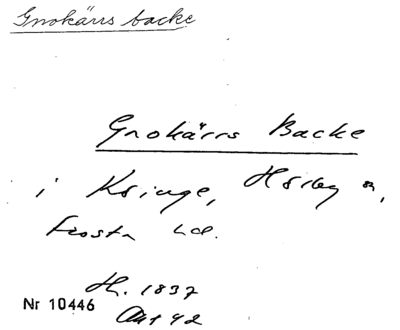 Gnokärrs backe
Gnokärrs Backe
i Kringe, Hörby sn,
Frosta hd.
H. 1837
Nr 10446
Akt 42